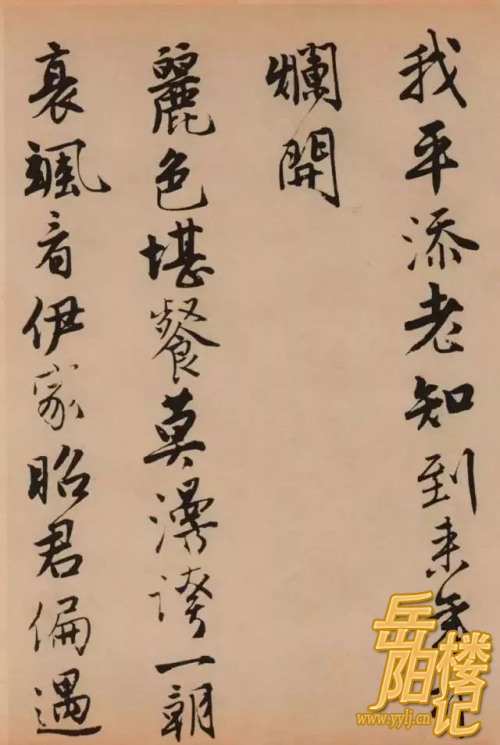 我平添老知到来年
爛開
麗色堪餐莫漫誇一朝
衰颯看伊家昭君偏遇
岳阳楼记
www.yylj.cn